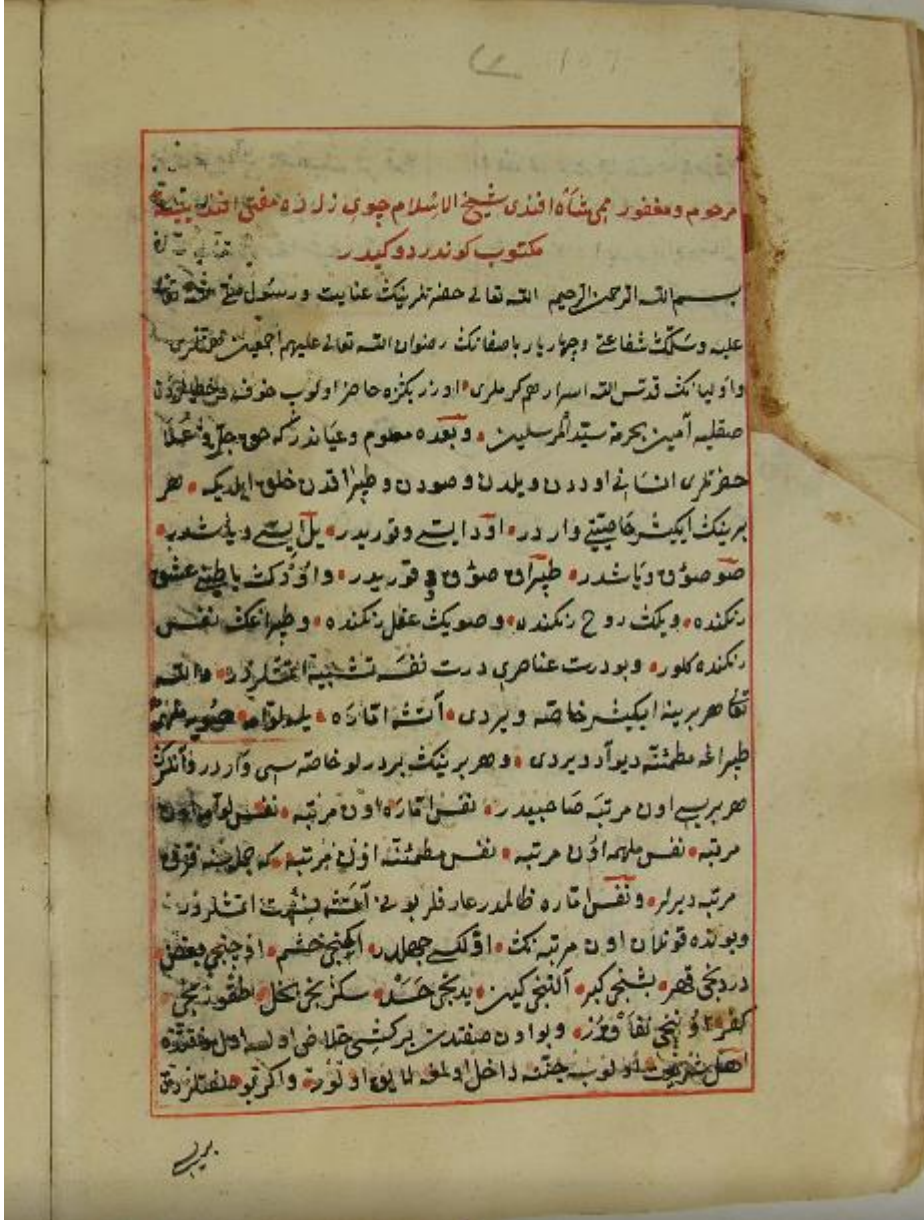 مرحوم و مغفور محى شاه افندى شيخ الاسلام چوى زاده مفتى افندى
مكتوب كوندردوكيدر
بسم الله الرحمن الرحيم الله تعالى حضرتلرينك عنايت و رسول
عليه وسلمك شفاعتى و چهار يار باصفانك رضوان الله تعالى عليهم اجمعين همتلرى
و اوليانك قدس الله اسرارهم كرملرى اوزريكزه حاضر اولوب خوف
صقليه آمين بحرمة سيد المرسلين وبعده معلوم و عياندركه حق جل و علا
حضرتلرى انسانى اوددن و يلدن و صودن و طپراقدن خلق ايلديكه هر
برينك ايكيشر خاصيتى واردر اود ايسى و قوريدر يل ايسى و ياشدر
صو صوق و ياشدر طپراق صوق و قوريدر و اودك باطنى عشق
رنكنده و يلك روح رنكنده و صويك عقل رنكنده و طپراغك نفس
رنكنده كلور و بو درت عناصرى درت نفسه تشبيه اتمشلردر و الله
تعالى هر برينه ايكيشر خاصه ويردى آتشه اماره يله لوامه صويه ملهمه
طپراغه مطمئنه ديو آد ويردى و هر برينك بر درلو خاصه سى واردر و آنلرك
هر برى اون مرتبه صاحبيدر نفس اماره اون مرتبه نفس لوامه اون
مرتبه نفس ملهمه اون مرتبه نفس مطمئنه اون مرتبه كه جمله سنه قرق
مرتبه ديرلر و نفس اماره ظالمدر عارفلر بونى آتشه نسبت اتمشلردر
و بونده قونلان اون مرتبه نك اولكى جهلدر ايكنجى خشم اوچنجى بغض
دردنجى قهر بشنجى كبر آلتنجى كين يدنجى حسد سكزنجى بخل طقوزنجى
كفر اوننجى نفاقدر و بو اون صفتدن بر كشى خلاص اولسه اول
اهل شريعت اولوب جنته داخل اولمغه لايق اولور و اكر بو صفتلردن
برى